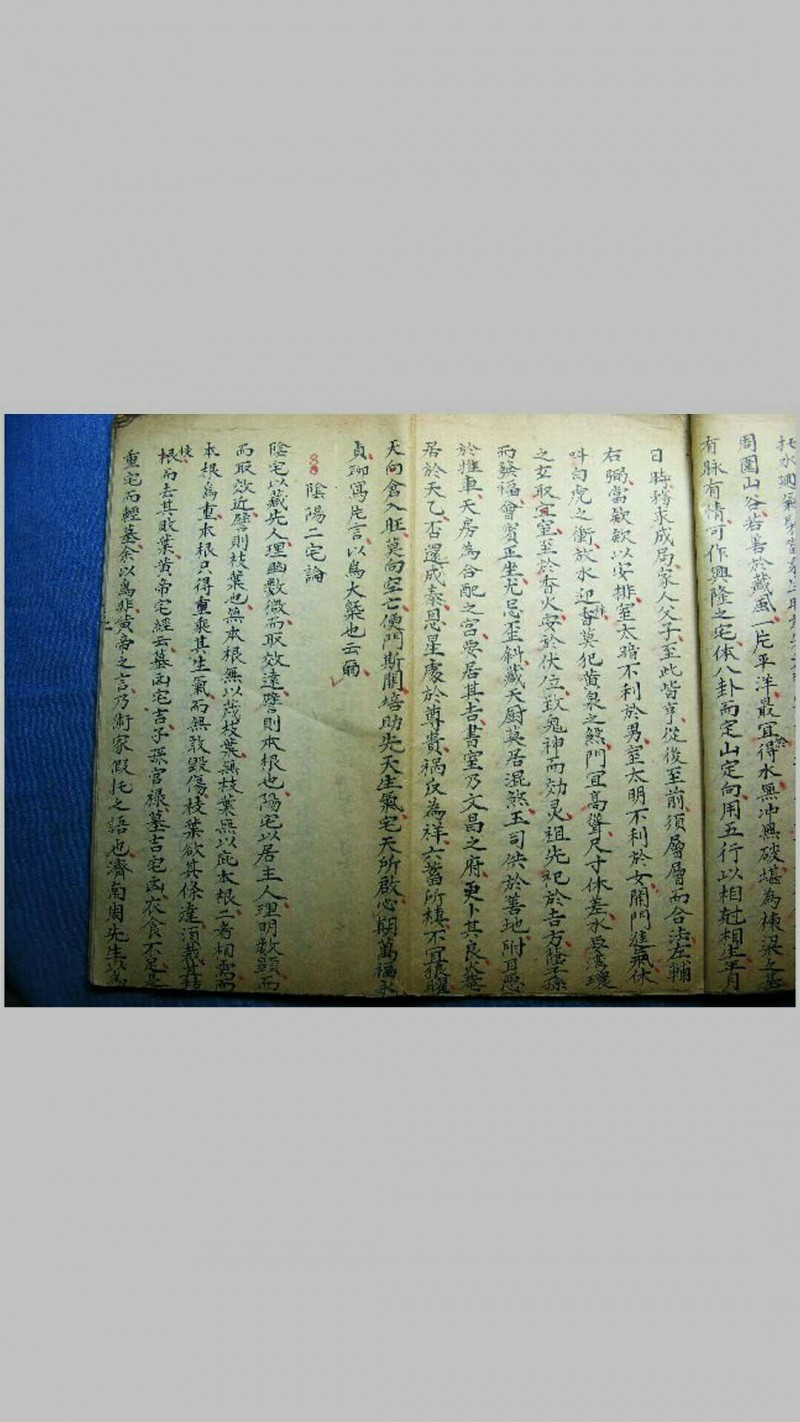 周圍山谷若善於藏風一片平洋最宜得水無冲無破堪為棟梁之基
有脉有情可作興隆之宅体八卦而定山定向用五行以相尅相生年月
日時務求成局家人父子至此皆亨從後至前須層層而合法左輔
右弼當欵欵以安排室太暗不利於男室太明不利於女開門進氣休
呌白虎之衝放水迎祥莫犯黃泉之煞門宜高聳尺寸休差水要灣環
之玄取宜室至於香火安於伏位致鬼神而効灵祖先祀於吉方蔭子孫
而發福會賓正坐尤忌歪斜藏天厨莫居混煞玉司供於善地附耳惡
於推車天房為合配之宮要居其吉書室乃文昌之府更卜其良
居於天乙否還成泰恩星處於尊貴禍反為祥六畜所棲不宜
天向倉入旺莫向空亡便門斯開培助先天生氣宅天所啟心期萬福永
貞聊寫片言以為大槩也云爾
陰陽二宅論
陰宅以藏先人理幽数微而取效遠譬則本根也陽宅以居主人理明数顯而
而取效近譬則枝葉也無本根無以茂枝葉無枝葉無以庇本根二者相需而
本根為重本根只得重乘其生氣而無敢毀傷枝葉欲其條達須栽其枯
枝
根而去其敗葉黃帝宅經云墓凶宅吉子孫官禄墓吉宅凶衣食不足是
重宅而輕墓余以為非黃帝之言乃術家假托之語也濟南周先生以為